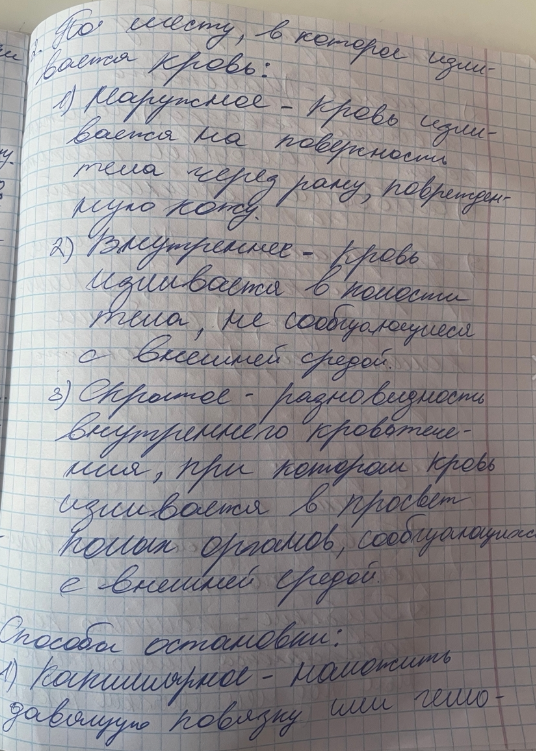 2. По месту, в которое изли-
вается кровь:
1) Наружное - кровь изли-
вается на поверхности
тела через рану, поврежден-
ную кожу.
2) Внутреннее - кровь
изливается в полости
тела, не сообщающиеся
с внешней средой.
3) Скрытое - разновидность
внутреннего кровотече-
ния, при котором кровь
изливается в просвет
полых органов, сообщающихся
с внешней средой
Способы остановки:
1) Капиллярное - наложить
давящую повязку или гемо-